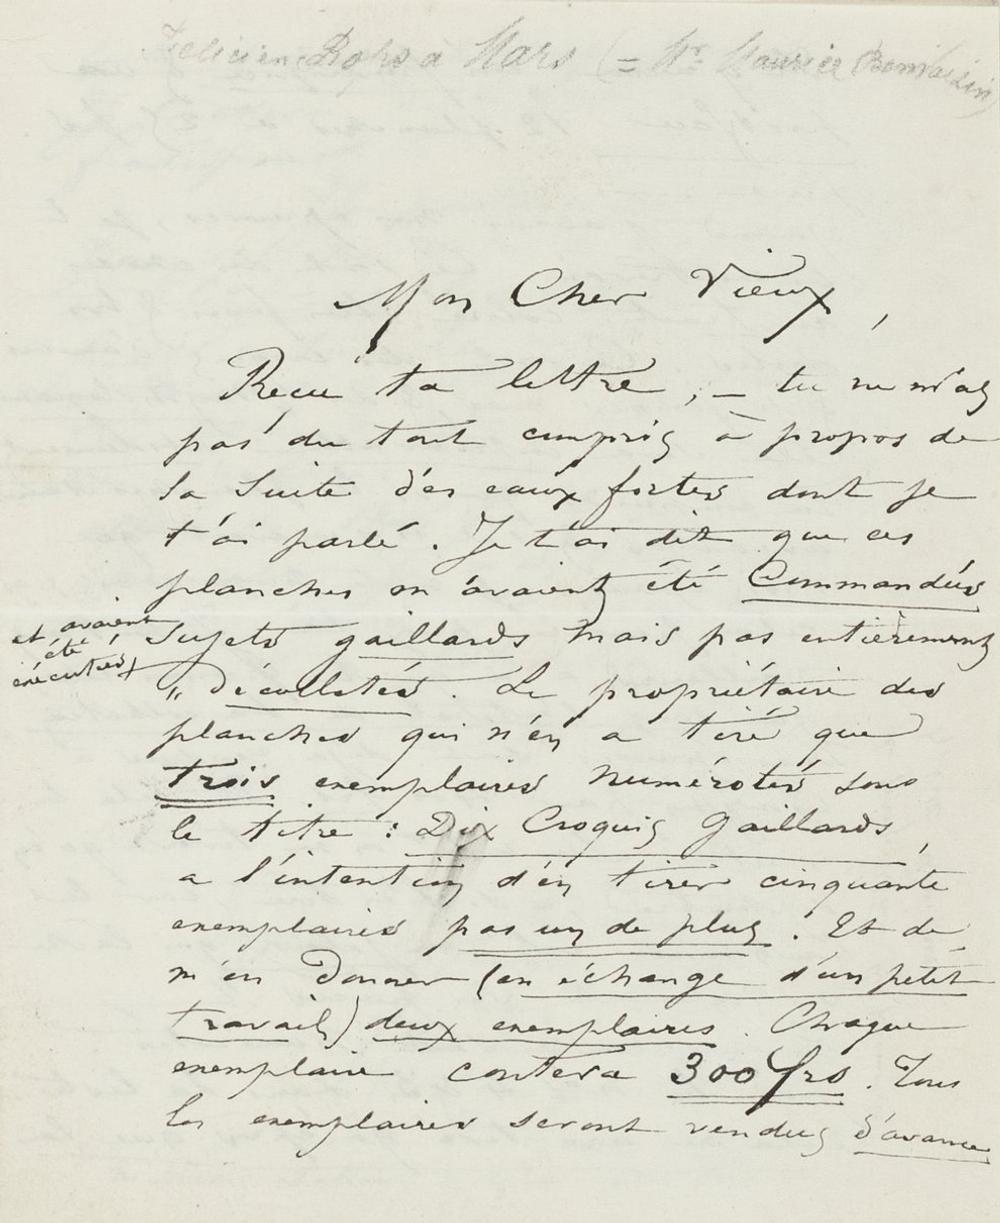 Felicien Rops à Mars (= Mr Maurice Bonvoisin)
Mon Cher Vieux,
Recu ta lettre, – tu ne m'as
pas du tout compris à propos de
la suite des eaux fortes dont je
t'ai parlé. Je t'ai dit que ces
planches m'avaient été Commandées
et avaient
été
exécutées
sujets gaillards mais pas entièrement
"décolletés. Le propriétaire des
planches qui n'en a tiré que
trois exemplaires numérotés sous
le titre : Dix Croquis Gaillards,
a l'intention d'en tirer cinquante
exemplaires pas un de plus. Et de
m'en donner (en échange d'un petit
travail) deux exemplaires. Chaque
exemplaire coutera 300 frs. Tous
les exemplaires seront vendus d'avance